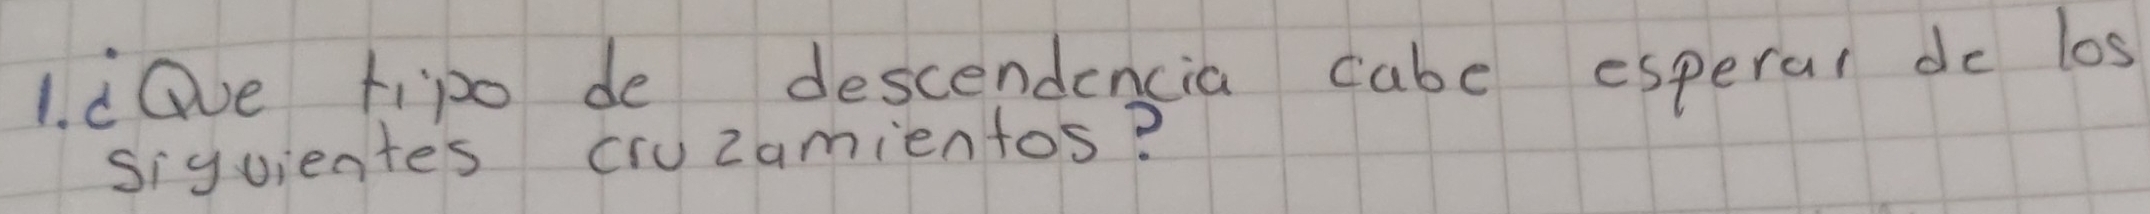 1. ¿Que tipo de descendencia cabe esperar de los
siguientes cruzamientos?